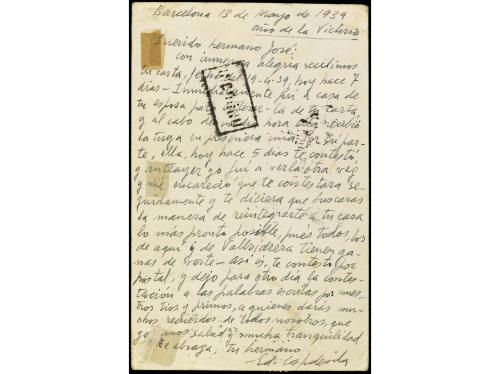 Barcelona 13 de Mayo de 1939
año de la Victoria
Querido hermano José:
con inmensa alegria recibimos
tu carta, fecha del 19-4-39, hoy hace 7
dias - Inmediatamente fui a casa de
tu esposa para la de tu carta,
y al cabo de hora recibió
la tuya en presencia mia. Por su par-
te, ella, hoy hace 5 dias te contestó,
y anteayer yo fui a verla otra vez
y me encareció que te contestara se-
guidamente y te diciera que buscaras
la manera de reintegrarte a tu casa
lo más pronto posible, pués todos, los
de aqui y de Vallvidrera tienen ga-
nas de verte - asi es, te contesto por
postal, y dejo para otro dia la contes-
tación a las palabras escritas por nues-
tros tios y primos, a quienes darás mu-
chos recuerdos de todos nosotros, que
gozamos salud y mucha tranquilidad
y te abraza, tu hermano
Capdevila